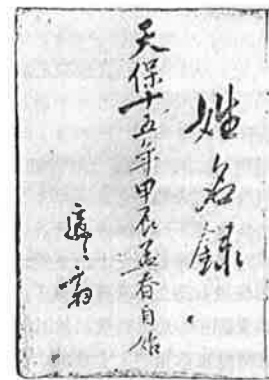 姓名録
天保十五年甲辰孟春自作